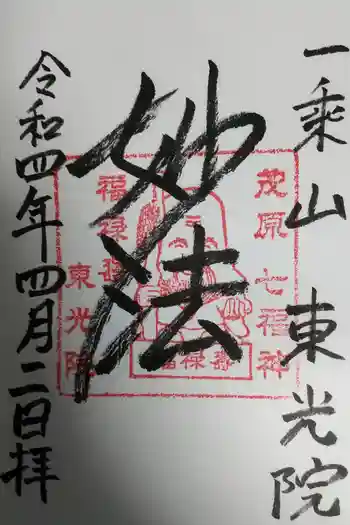 一乗山 東光院
妙法
茂原七福神
福禄寿
東光院
福禄寿
令和四年四月二日拝